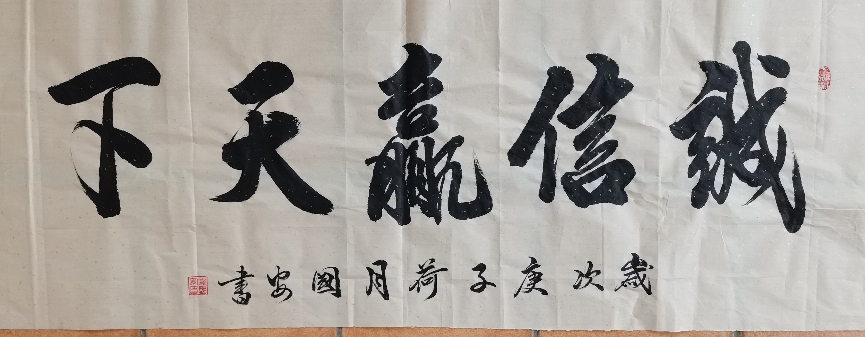 誠信贏天下
歲次庚子荷月國安書